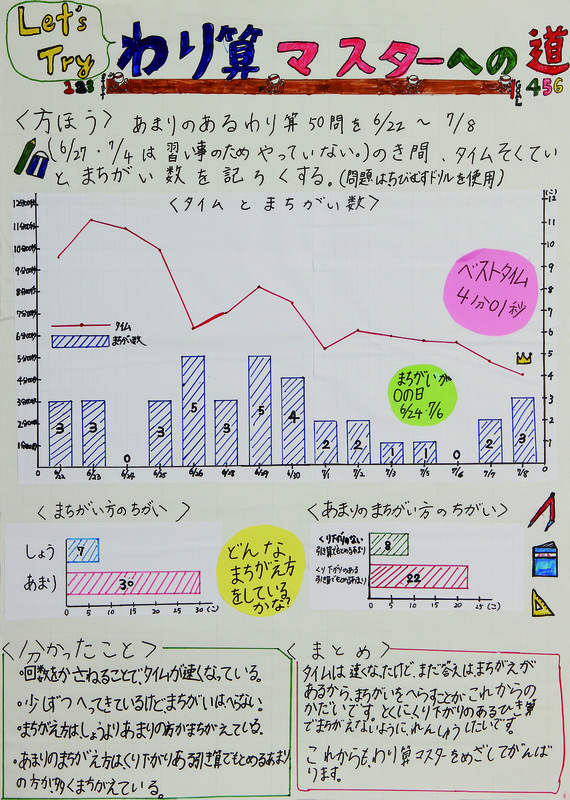 Let's
Try
わり算マスターへの道
123
456
〈方ほう〉あまりのあるわり算50問を6/22～7/8
(6/27・7/4は習い事のためやっていない。)のき間、タイムそくてい
とまちがい数を記ろくする。(問題はちびむすドリルを使用)
〈タイムとまちがい数〉
タイム
ベストタイム
4分01秒
まちがいが
0の日
6/24・7/6
12
11
10
9
8
7
6
5
4
3
2
1
0
3 3 0 3 5 3 5 4 2 2 1 1 0 2 3
6/22 6/23 6/24 6/25 6/26 6/28 6/29 6/30 7/1 7/2 7/3 7/5 7/6 7/7 7/8
〈まちがい方のちがい〉
しょう 7
あまり 30
0 5 10 15 20 25 30(こ)
どんな
まちがえ方
をしている
かな?
〈あまりのまちがい方のちがい〉
くり下がりのない
引き算でもとめるあまり
8
くり下がりのある
引き算でもとめるあまり
22
0 5 10 15 20 25(こ)
〈分かったこと〉
・回数をかさねることで、タイムが速くなっている。
・少しずつへってきているけど、まちがいはへらない。
・まちがえ方はしょうよりあまりの方がまちがえている。
・あまりのまちがえ方は、くり下がりある引き算でもとめるあまり
の方が多くまちがえている。
〈まとめ〉
タイムは速くなったけど、まだ答えはまちがえが
あるから、まちがいをへらすことが、これからの
かだいです。とくにくり下がりのあるひき算
でまちがえないように、れんしゅうしたいです。
これからも、わり算マスターをめざしてがんば
ります。